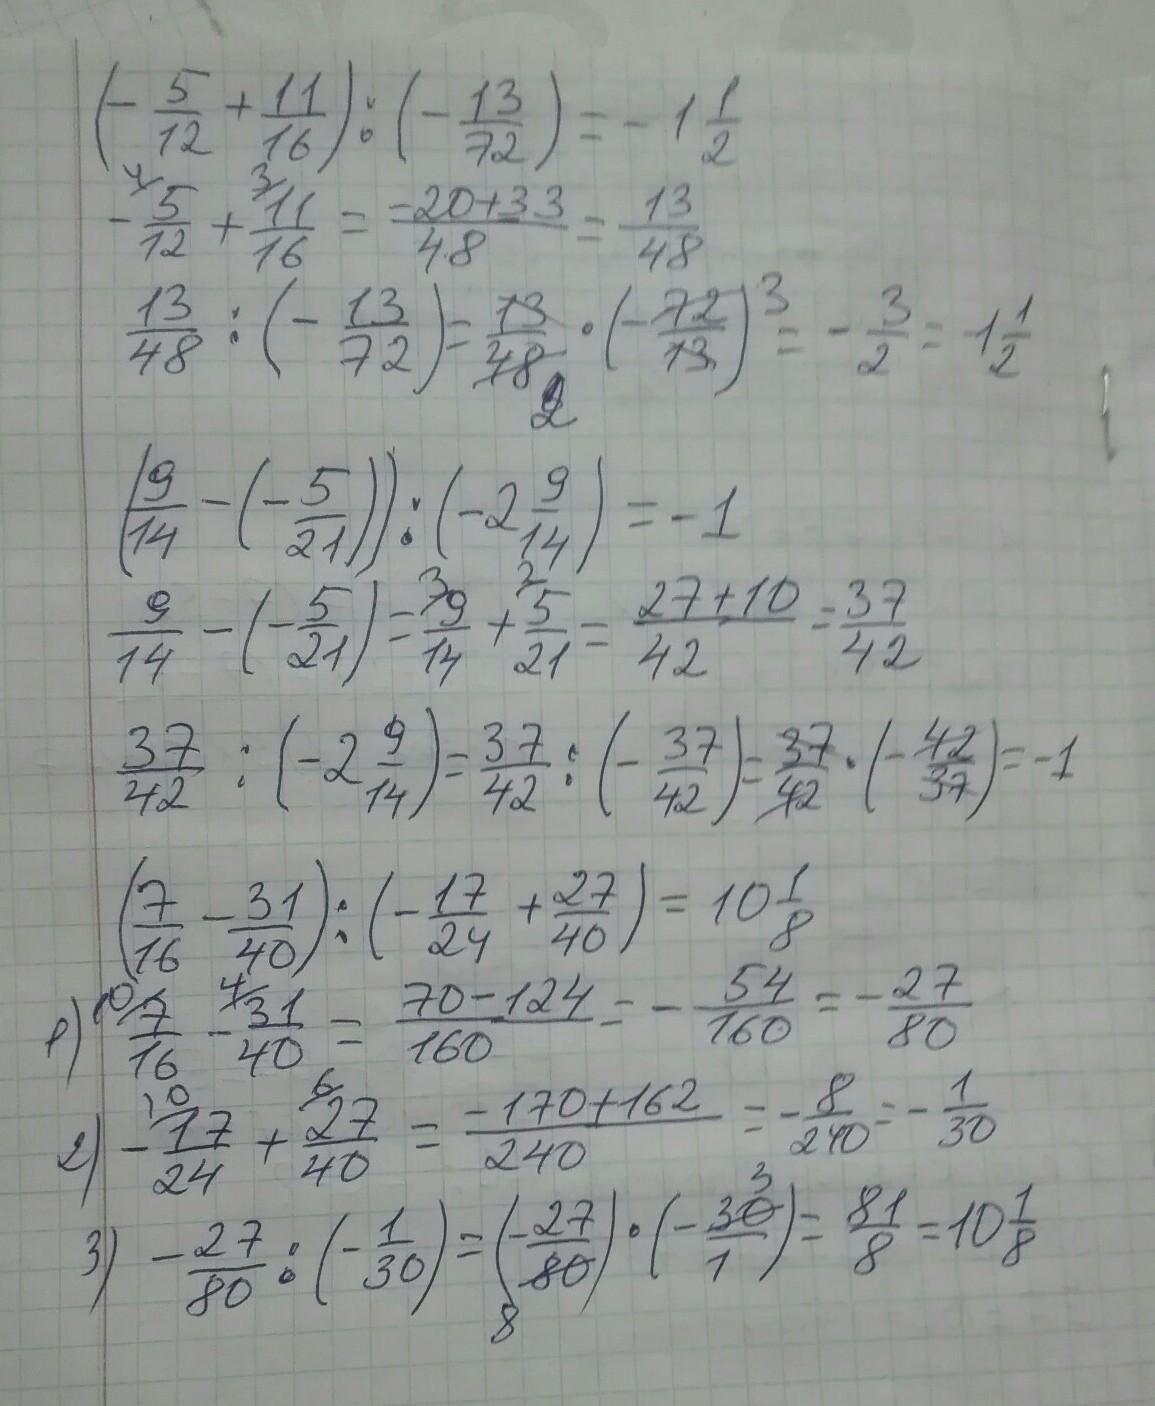 (-5/12 + 11/16) : (-13/72) = -1 1/2
-5/12 + 11/16 = -20+33/48 = 13/48
13/48 : (-13/72) = 13/48 · (-72/13) = -3/2 = -1 1/2
(9/14 - (-5/21)) : (-2 9/14) = -1
9/14 - (-5/21) = 9/14 + 5/21 = 27+10/42 = 37/42
37/42 : (-2 9/14) = 37/42 : (-37/42) = 37/42 · (-42/37) = -1
(7/16 - 31/40) : (-17/24 + 27/40) = 10 1/8
1) 7/16 - 31/40 = 70-124/160 = -54/160 = -27/80
2) -17/24 + 27/40 = -170+162/240 = -8/240 = -1/30
3) -27/80 : (-1/30) = (-27/80) · (-30/1) = 81/8 = 10 1/8